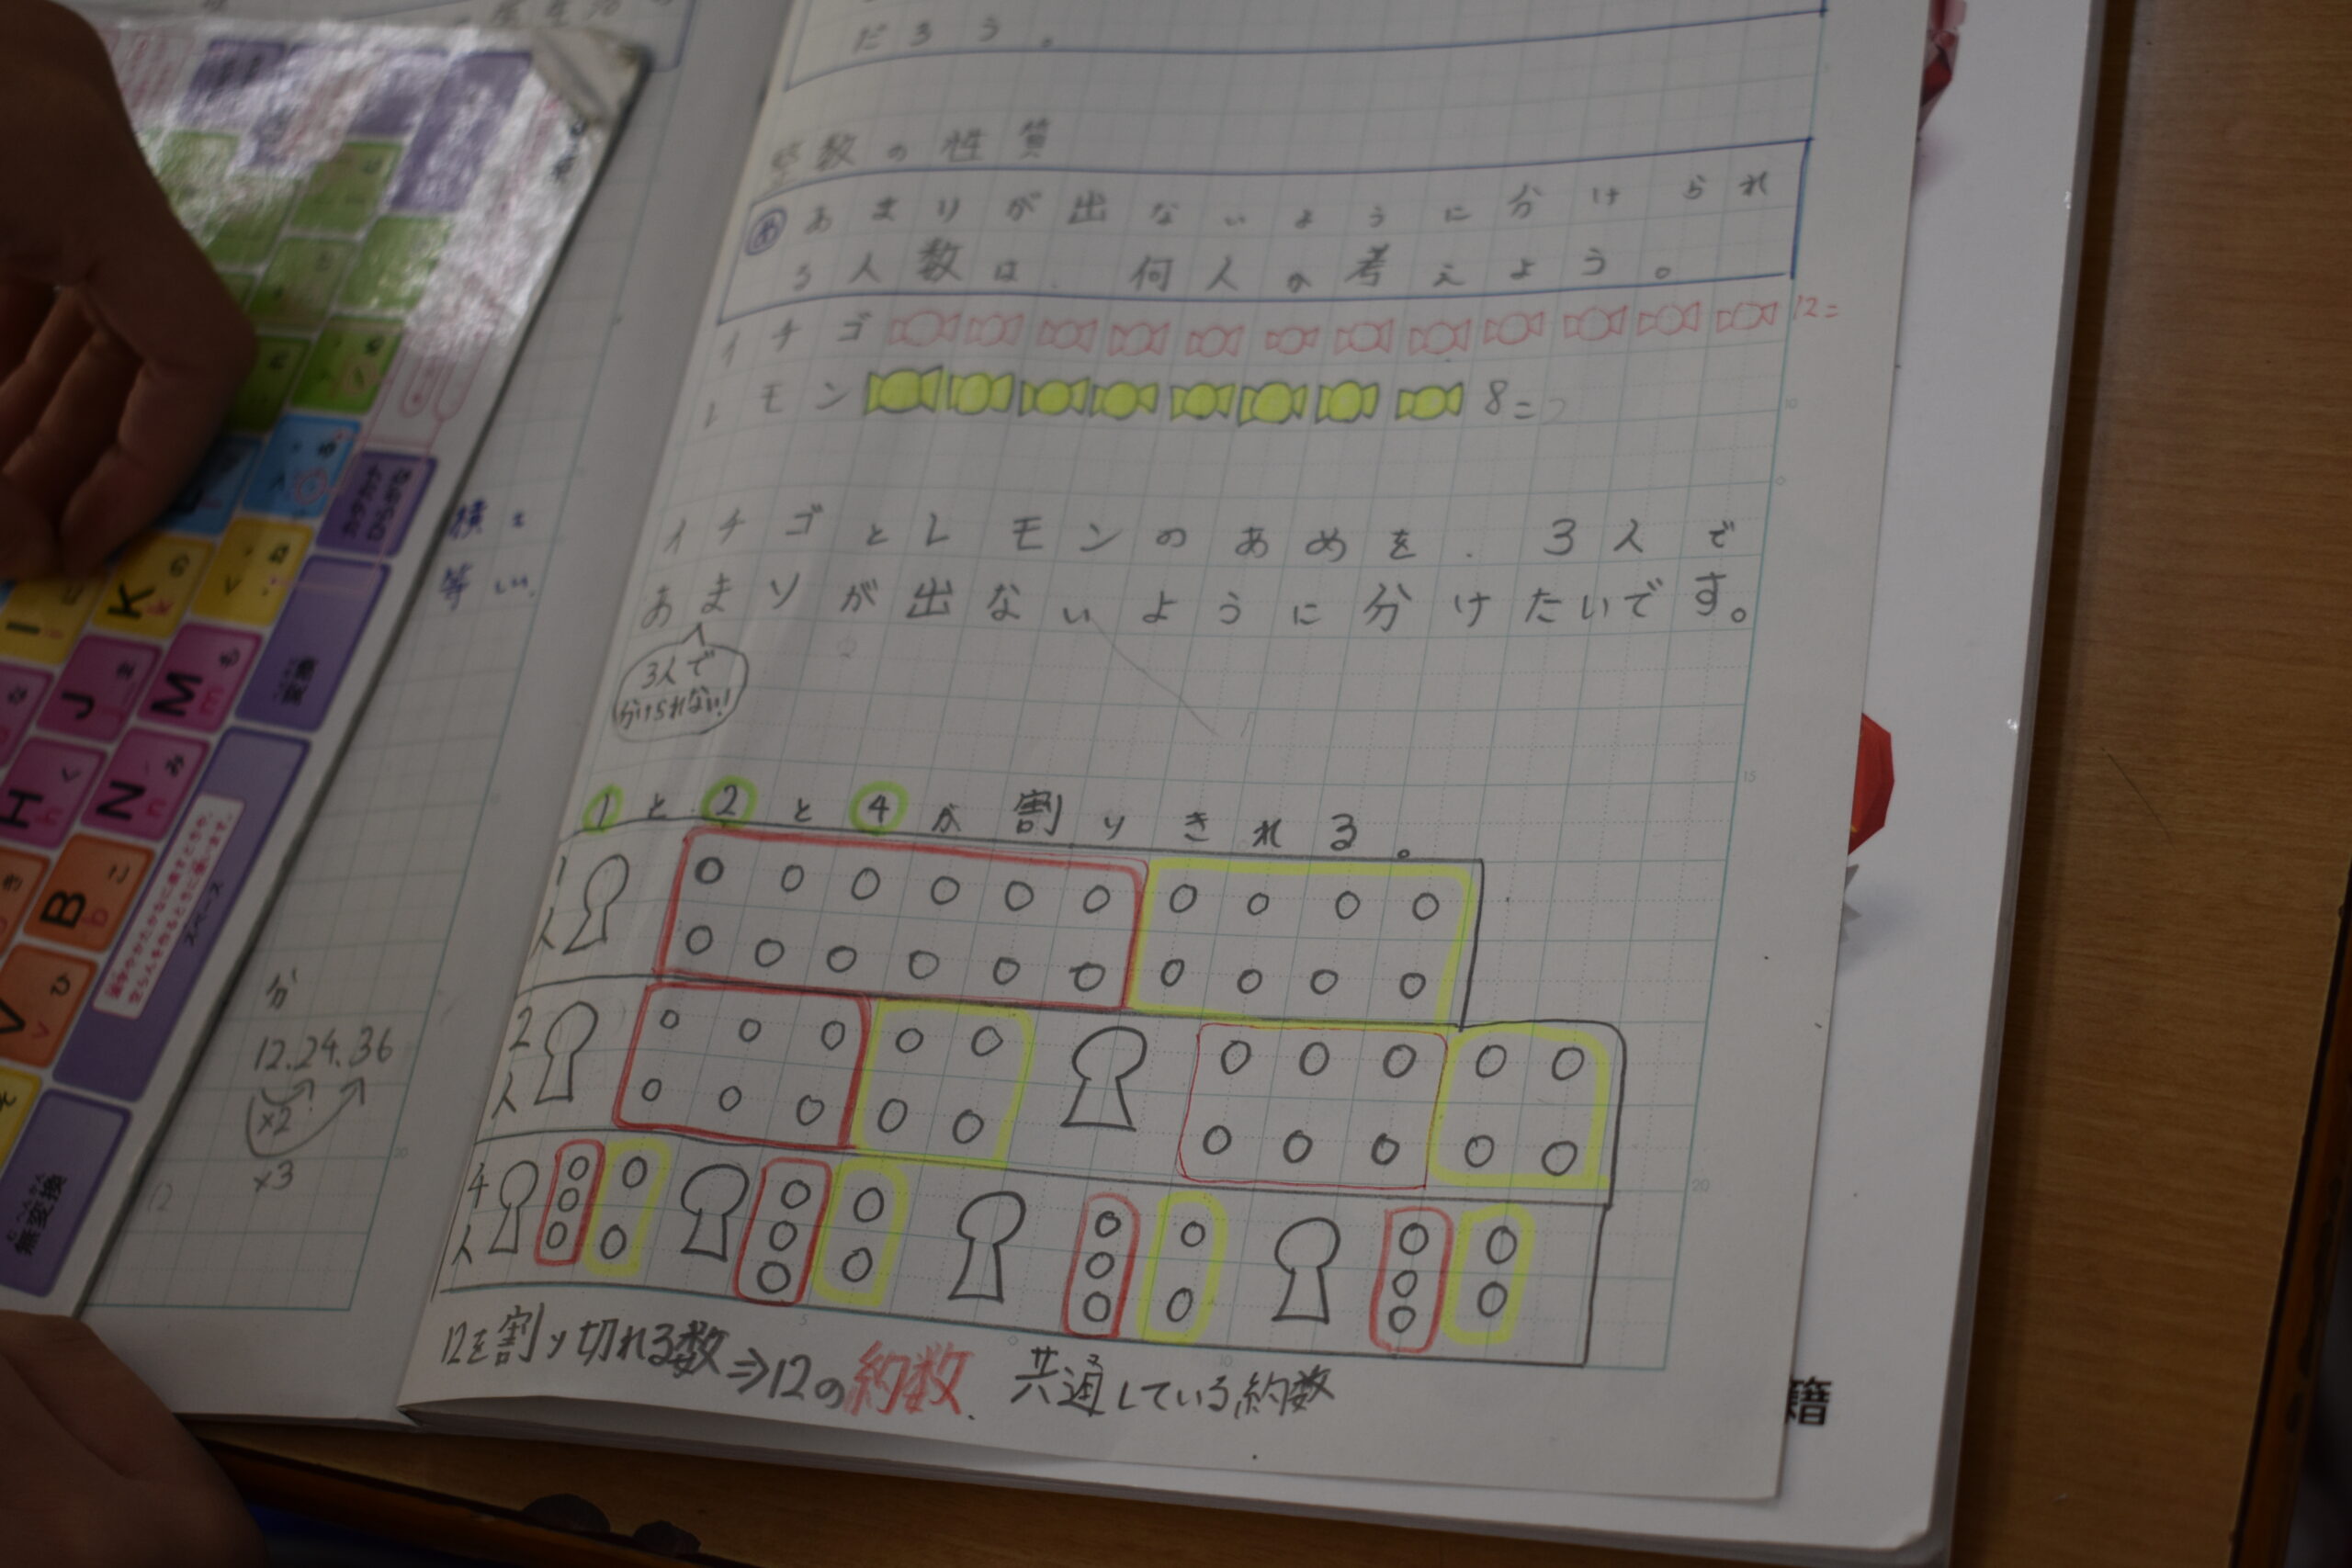 だろう。
整数の性質
め あまりが出ないように分けられ
る人数は、何人か考えよう。
イチゴ 12=
レモン 8=
イチゴとレモンのあめを、3人で
あまりが出ないように分けたいです。
3人で
分けられない!
1と2と4が割りきれる。
1人
2人
4人
12を割り切れる数⇒12の約数、共通している約数
積と
等しい。
分
12.24.36
×2
×3
カタカナ
ひらがな
変換
無変換
スペース
I に i
K の k
J ま
M も m
H く h
N み n
B こ b
V ひ v
ね
め
籍
10
15
20
5
10
20